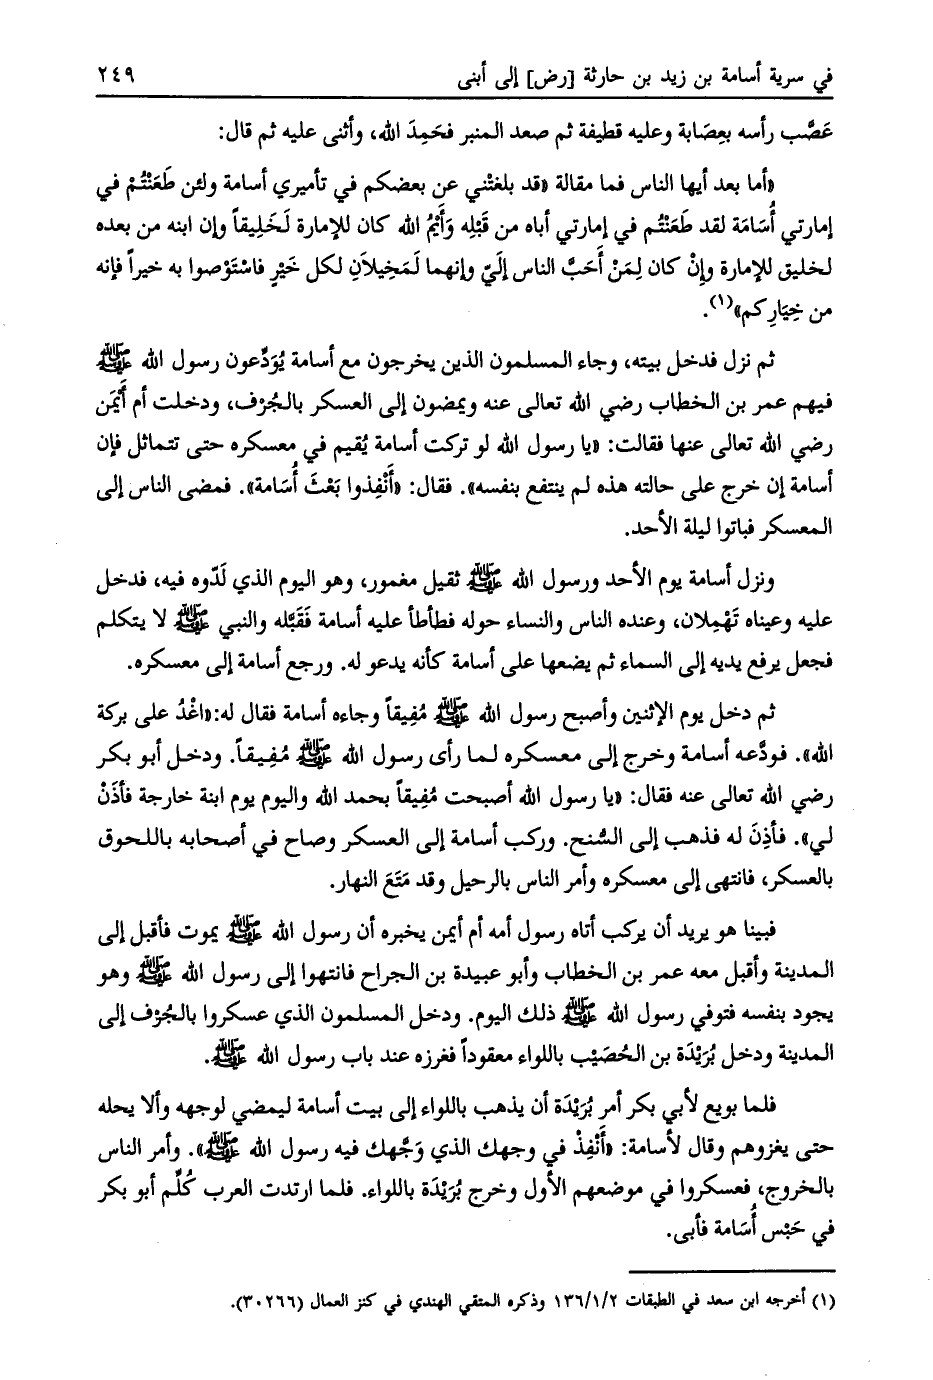 في سرية أسامة بن زيد بن حارثة [رض] إلى أبنى ٢٤٩
عَصَّب رأسه بعِصَابة وعليه قطيفة ثم صعد المنبر فحَمِدَ الله، وأثنى عليه ثم قال:
«أما بعد أيها الناس فما مقالة «قد بلغتْني عن بعضكم في تأميري أسامة ولئن طَعَنْتُمْ في
إمارتي أُسَامَة لقد طَعَنْتُم في إمارتي أباه من قَبْلِه وَأَيْمُ الله كان للإمارة لَخَلِيقاً وإن ابنه من بعده
لخليق للإمارة وإِنْ كان لِمَنْ أَحَبَّ الناس إلَيّ وإنهما لَمَخِيلاَنِ لكل خَيْرٍ فاسْتَوْصوا به خيراً فإنه
من خِيَارِكم»(١).
ثم نزل فدخل بيته، وجاء المسلمون الذين يخرجون مع أسامة يُوَدِّعون رسول الله ﷺ
فيهم عمر بن الخطاب رضي الله تعالى عنه ويمضون إلى العسكر بالجُرْف، ودخلت أم أَيْمَن
رضي الله تعالى عنها فقالت: «يا رسول الله لو تركت أسامة يُقيم في معسكره حتى تتماثل فإن
أسامة إن خرج على حالته هذه لم ينتفع بنفسه». فقال: «أَنْفِذوا بَعْثَ أُسَامة». فمضى الناس إلى
المعسكر فباتوا ليلة الأحد.
ونزل أسامة يوم الأحد ورسول الله ﷺ ثقيل مغمور، وهو اليوم الذي لَدّوه فيه، فدخل
عليه وعيناه تَهْمِلان، وعنده الناس والنساء حوله فطأطأ عليه أسامة فَقَبَّله والنبي ﷺ لا يتكلم
فجعل يرفع يديه إلى السماء ثم يضعها على أسامة كأنه يدعو له. ورجع أسامة إلى معسكره.
ثم دخل يوم الإثنين وأصبح رسول الله ﷺ مُفِيقاً وجاءه أسامة فقال له:«اغْدُ على بركة
الله». فودَّعه أسامة وخرج إلى معسكره لما رأى رسول الله ﷺ مُفِيقاً. ودخل أبو بكر
رضي الله تعالى عنه فقال: «يا رسول الله أصبحت مُفِيقاً بحمد الله واليوم يوم ابنة خارجة فأذَنْ
لي». فأذِنَ له فذهب إلى السُّنح. وركب أسامة إلى العسكر وصاح في أصحابه باللحوق
بالعسكر، فانتهى إلى معسكره وأمر الناس بالرحيل وقد مَتَعَ النهار.
فبينا هو يريد أن يركب أتاه رسول أمه أم أيمن يخبره أن رسول الله ﷺ يموت فأقبل إلى
المدينة وأقبل معه عمر بن الخطاب وأبو عبيدة بن الجراح فانتهوا إلى رسول الله ﷺ وهو
يجود بنفسه فتوفي رسول الله ﷺ ذلك اليوم. ودخل المسلمون الذي عسكروا بالجُرْف إلى
المدينة ودخل بُرَيْدَة بن الحُصَيْب باللواء معقوداً فغرزه عند باب رسول الله ﷺ.
فلما بويع لأبي بكر أمر بُرَيْدَة أن يذهب باللواء إلى بيت أسامة ليمضي لوجهه وألا يحله
حتى يغزوهم وقال لأسامة: «أَنْفِذْ في وجهك الذي وَجَّهك فيه رسول الله ﷺ». وأمر الناس
بالخروج، فعسكروا في موضعهم الأول وخرج بُرَيْدَة باللواء. فلما ارتدت العرب كُلِّم أبو بكر
في حَبْس أُسَامة فأبى.
(١) أخرجه ابن سعد في الطبقات ١٣٦/١/٢ وذكره المتقي الهندي في كنز العمال (٣٠٢٦٦).